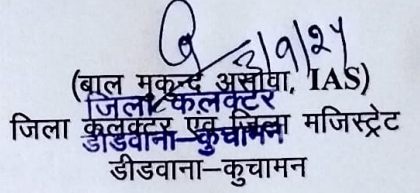 3/9/24
(बाल मुकुन्द असावा, IAS)
जिला कलक्टर
जिला कलक्टर एवं जिला मजिस्ट्रेट
डीडवाना-कुचामन
डीडवाना-कुचामन